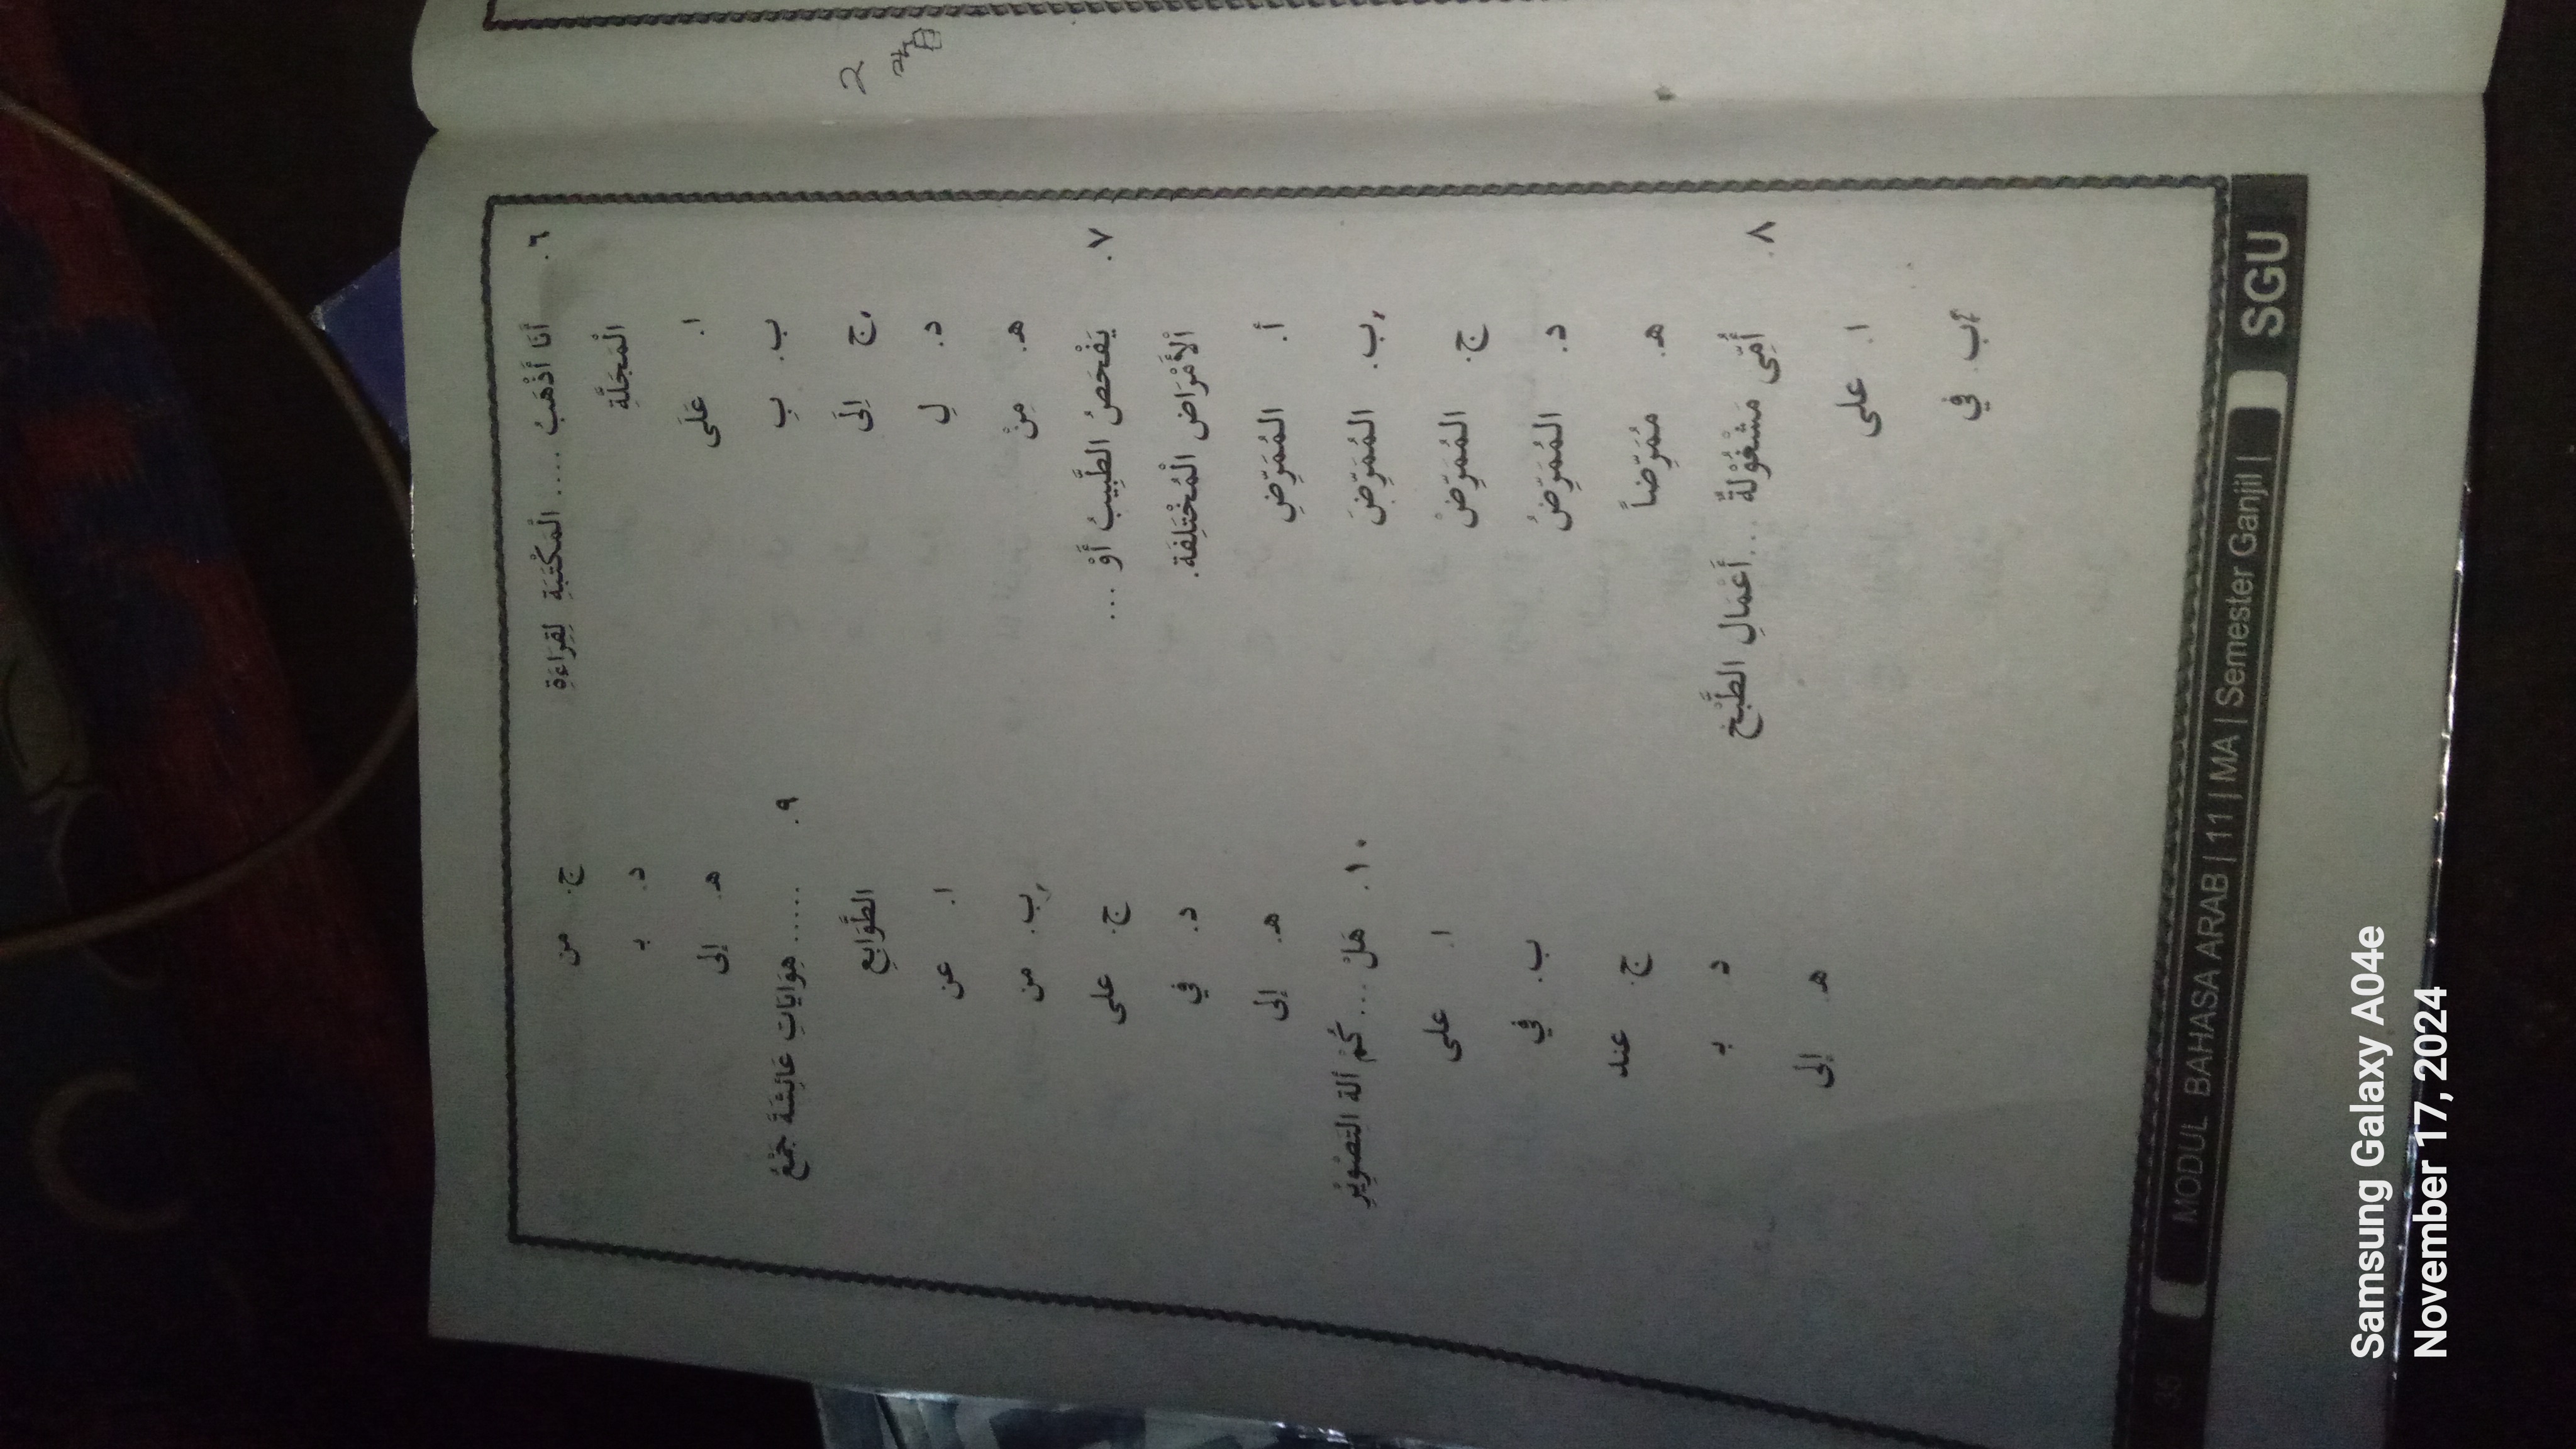 ٦. أَنَا أَذْهَبُ .... الْمَكْتَبَةِ لِقِرَاءَةِ
الْمَجَلَّةِ
ا. عَلَى
ب. بِ
ج اِلَى
د. لِ
هـ. مِنْ
٧. يَفْحَصُ الطَّبِيبُ أَوْ ...
اْلأَمْرَاض الْمُخْتَلِفَة.
أ. المُمَرِّضِ
ب. المُمَرِّضَ
ج. المُمَرِّضْ
د. المُمَرِّضُ
هـ. مُمَرِّضاً
٨. أُمِّى مَشْغُوْلةٌ ...أَعْمَالِ الطَّبْخ
ا. على
ب. في
ج. من
د. بـ
هـ. إلى
٩. ..... هِوَايَاتِ عَائِشَةَ جَمْعُ
الطَّوَابِعِ
ا. عن
ب. من
ج. على
د. في
هـ. إلى
١٠. هَلْ ...كُمْ ألة التَصْوِيْرِ
ا. على
ب. في
ج. عند
د بـ
هـ إلى
2
36 MODUL BAHASA ARAB | 11 | MA | Semester Ganjil | SGU
Samsung Galaxy A04e
November 17, 2024